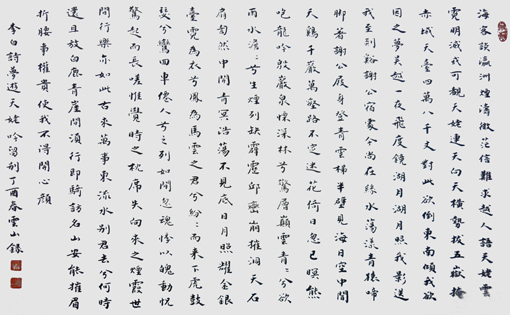 海客談瀛洲煙濤微茫信難求越人語天姥雲
霓明滅或可觀天姥連天向天橫勢拔五嶽掩
赤城天臺四萬八千丈對此欲倒東南傾我欲
因之夢吴越一夜飛度鏡湖月湖月照我影送
我至剡谿謝公宿處今尚在綠水蕩漾青猿啼
脚著謝公屐身登青雲梯半壁見海日空中聞
天鷄千巖萬壑路不定迷花倚石忽已暝熊
咆龍吟殷巖泉慄深林兮驚層巔雲青〻兮欲
雨水澹〻兮生煙列缺霹靂邱巒崩摧洞天石
扇訇然中開青冥浩蕩不見底日月照耀金銀
臺霓為衣兮鳳為馬雲之君兮紛〻而來下虎鼓
瑟兮鸞回車仙人兮之列如麻忽魂悸以魄動怳
驚起而長嗟惟覺時之枕席失向來之煙霞世
間行樂亦如此古來萬事東流水别君去兮何時
還且放白鹿青崖間須行即騎訪名山安能摧眉
折腰事權貴使我不得開心顏
李白詩夢遊天姥吟留别丁酉春雲山錄